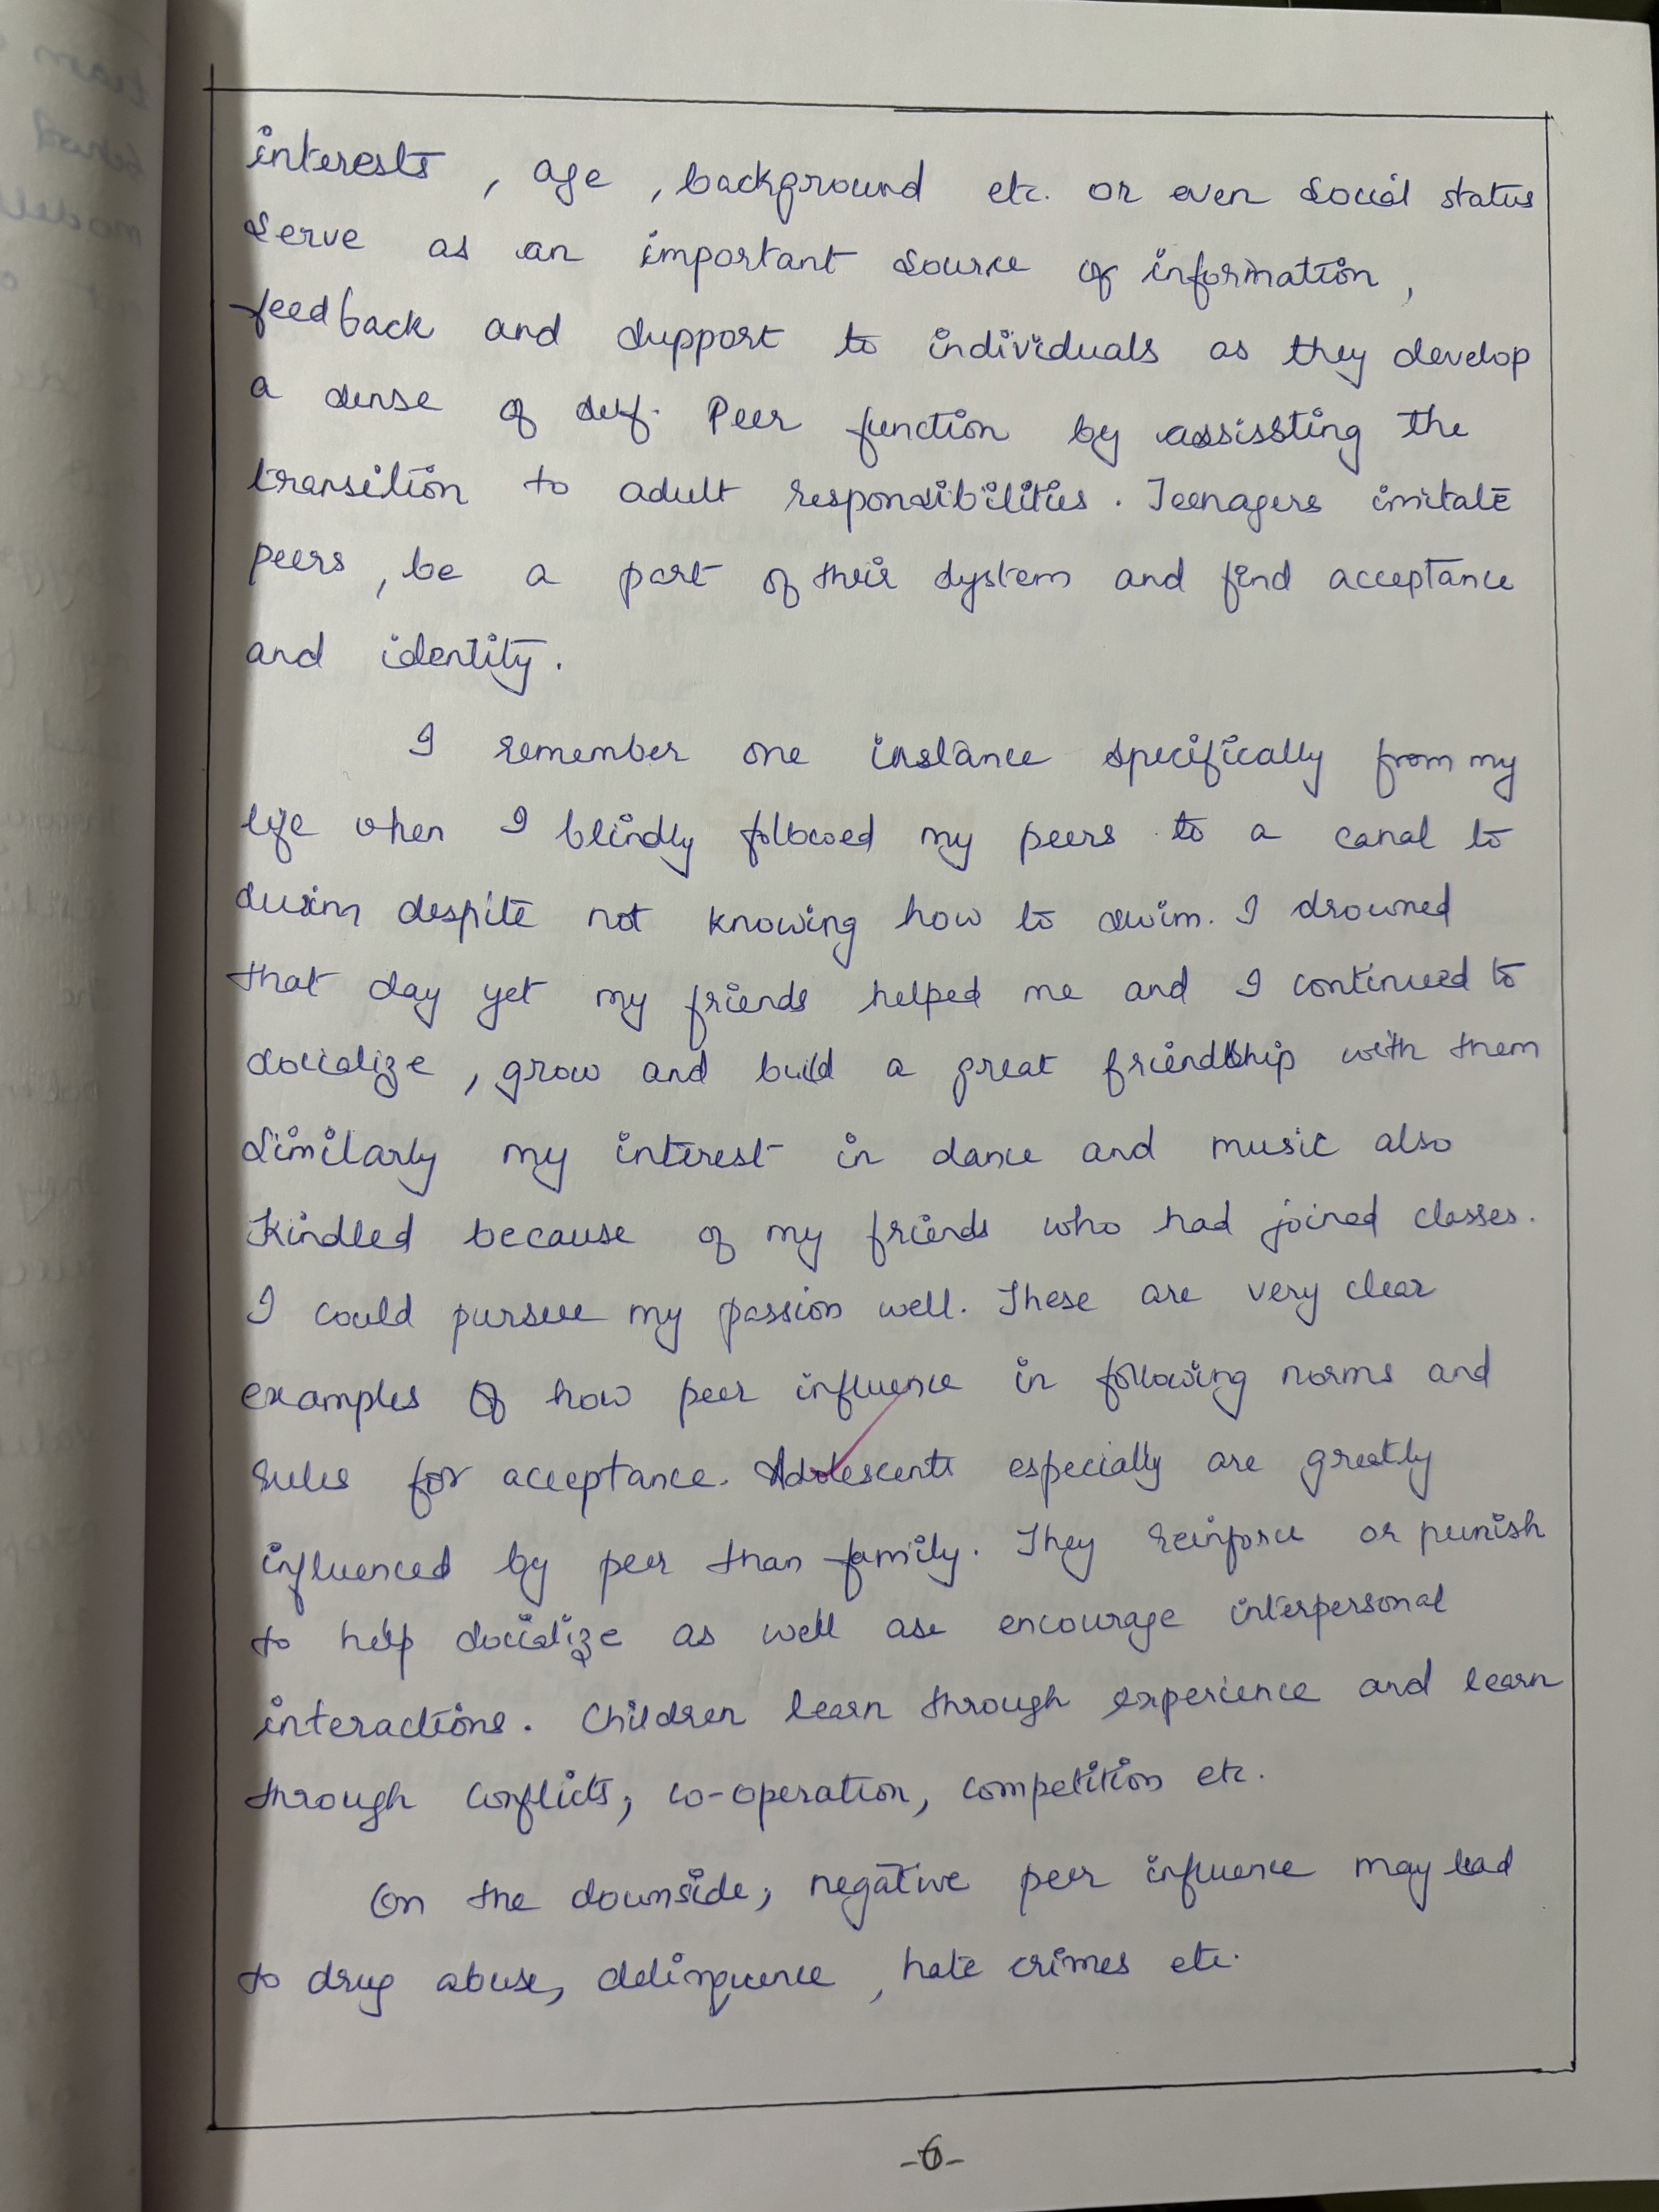 interests , age , background etc. or even social status
serve as an important source of information ,
feedback and support to individuals as they develop
a sense of self. Peer function by assissting the
transition to adult responsibilities . Teenagers imitate
peers , be a part of their system and find acceptance
and identity .
I remember one instance specifically from my
life when I blindly followed my peers to a canal to
swim despite not knowing how to swim. I drowned
that day yet my friends helped me and I continued to
socialize , grow and build a great friendship with them
Similarly my interest in dance and music also
Kindled because of my friends who had joined classes.
I could pursue my passion well. These are very clear
examples of how peer influence in following norms and
rules for acceptance. Adolescents especially are greatly
influenced by peer than family. They reinforce or punish
to help socialize as well as encourage interpersonal
interactions. Children learn through experience and learn
through conflicts, co-operation, competition etc.
On the downside, negative peer influence may lead
to drug abuse, delinquence , hate crimes etc.
-6-